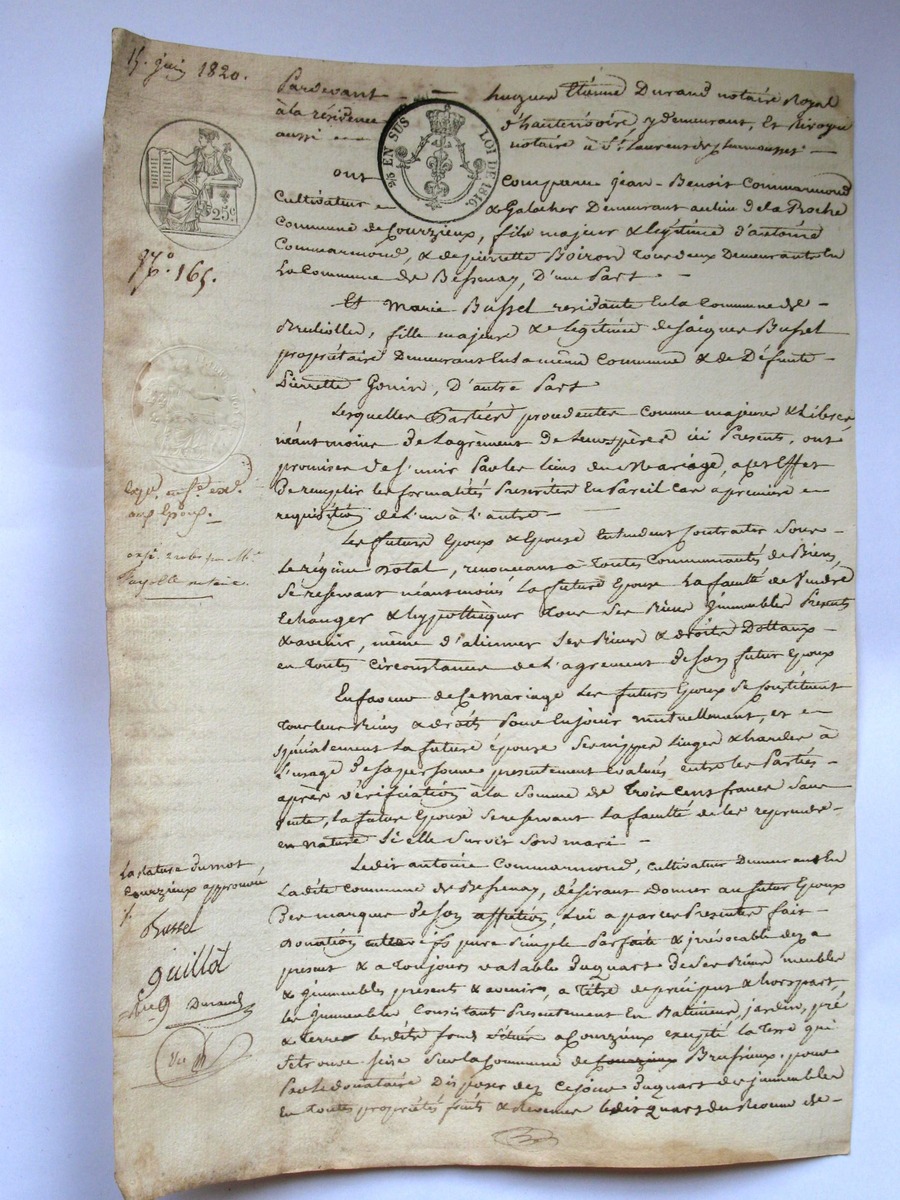 15. juin 1820.
Pardevant hugues Etienne Durand notaire Royal
à la résidence d'hauterivoire y demeurant, et
aussi notaire à St. Laurent de
2/5 EN SUS LOI DE 1816
25c
N.o 165.
ont Comparu jean-Benoit Commarmond
Cultivateur & Galocher Demeurant au lieu de la Roche
Commune de Courzieux, fils majeur & légitime d'antoine
Commarmond, & de pierrette Boiron Tous deux Demeurants En
La Commune de Bessenay, D'une Part
Et Marie Bussel residante En la Commune de
Brulliolles, fille majeure & légitime de jacques Bussel
propriétaire Demeurant En la même Commune & de Défunte
Pierrette Gonin, D'autre Part
Lesquelles Parties procedentes comme majeures & Libres
néantmoins de l'agrément de leurs pères ici Presents, ont
promises de s'unir Par les liens du Mariage, a cet Effet
De remplir les formalités Prescrites En Pareil cas a première
requisition de L'un à L'autre
Les future Epoux & Epouse Entendent Contracter Sous
Le régime Dotal, renonçant à Toutes Communautés de Biens,
Se reservant néantmoins La future Epouse La faculté de Vendre
Echanger & hypothèquer Tous Ses Biens Immeubles Presents
& avenir, même d'alienner Ses Biens & droits Dottaux
en Toute Circonstance de L'agrement de Son futur Epoux
En faveur de Ce Mariage Les futurs Epoux Se Constituent
Tous leurs Biens & droits Pour En jouir mutuellement, et
Spécialement La future épouse Ses nippes Linges & hardes à
L'usage de sa personne presentement évalués entre les Parties
après vérification a la Somme de Trois Cent francs Sans
vente, La future Epouse Se reservant La faculté de les reprendre
en nature Si elle Survit Son mari
Ledit antoine Commarmond, Cultivateur Demeurant En
La dite Commune de Bessenay, désirant Donner au futur Epoux
Des marques de Son affection, Lui a par ces Presentes fait
Donation entre vifs pure Simple Parfaite & irrévocable dez a
present & a Toujours valable Du quart de Ses Biens meubles
& Immeubles présents & avenir, a Titre de préciput & hors part,
les Immeubles Consistant Presentement En Batiments, jardin, pré
& Terres Lesdits fonds Situés a Courzieux excepté la Terre qui
Se trouve Sise Sur La Commune de Courzieux Brussieux, pour
Par Le donataire Disposer dez Ce jour Du quart des immeubles
En Toutes propriétés fonds & Revenus Ledit quart
aux Epoux.
notaire.
La rature du mot
Courzieux approuvée
Bussel
guillot
Durand